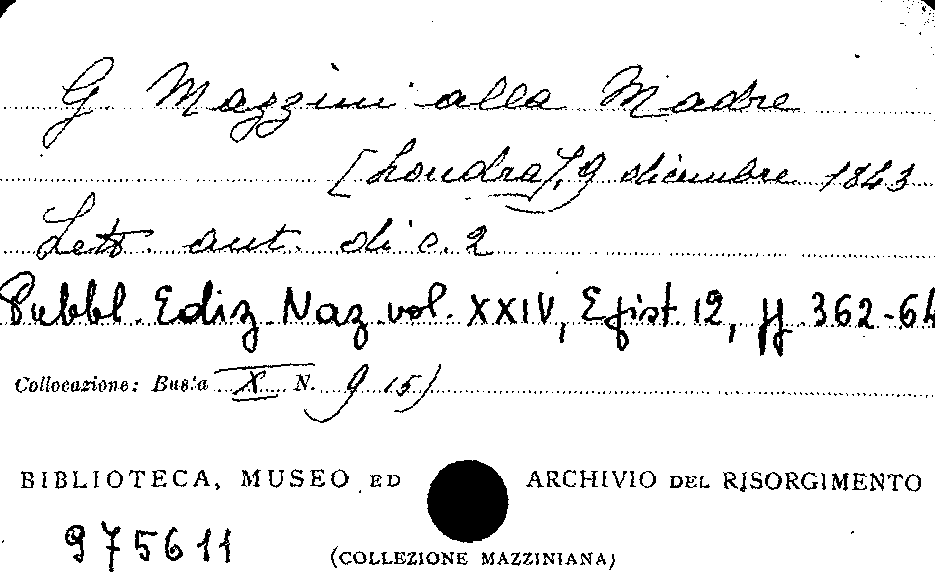 G. Mazzini alla Madre
[Londra], 9 dicembre 1843
Lett. aut. di c. 2
Pubbl. Ediz. Naz. vol. XXIV, Epist. 12, pp. 362-64
Collocazione: Busta X N. 9 15)
BIBLIOTECA, MUSEO ED ARCHIVIO DEL RISORGIMENTO
975611
(COLLEZIONE MAZZINIANA)